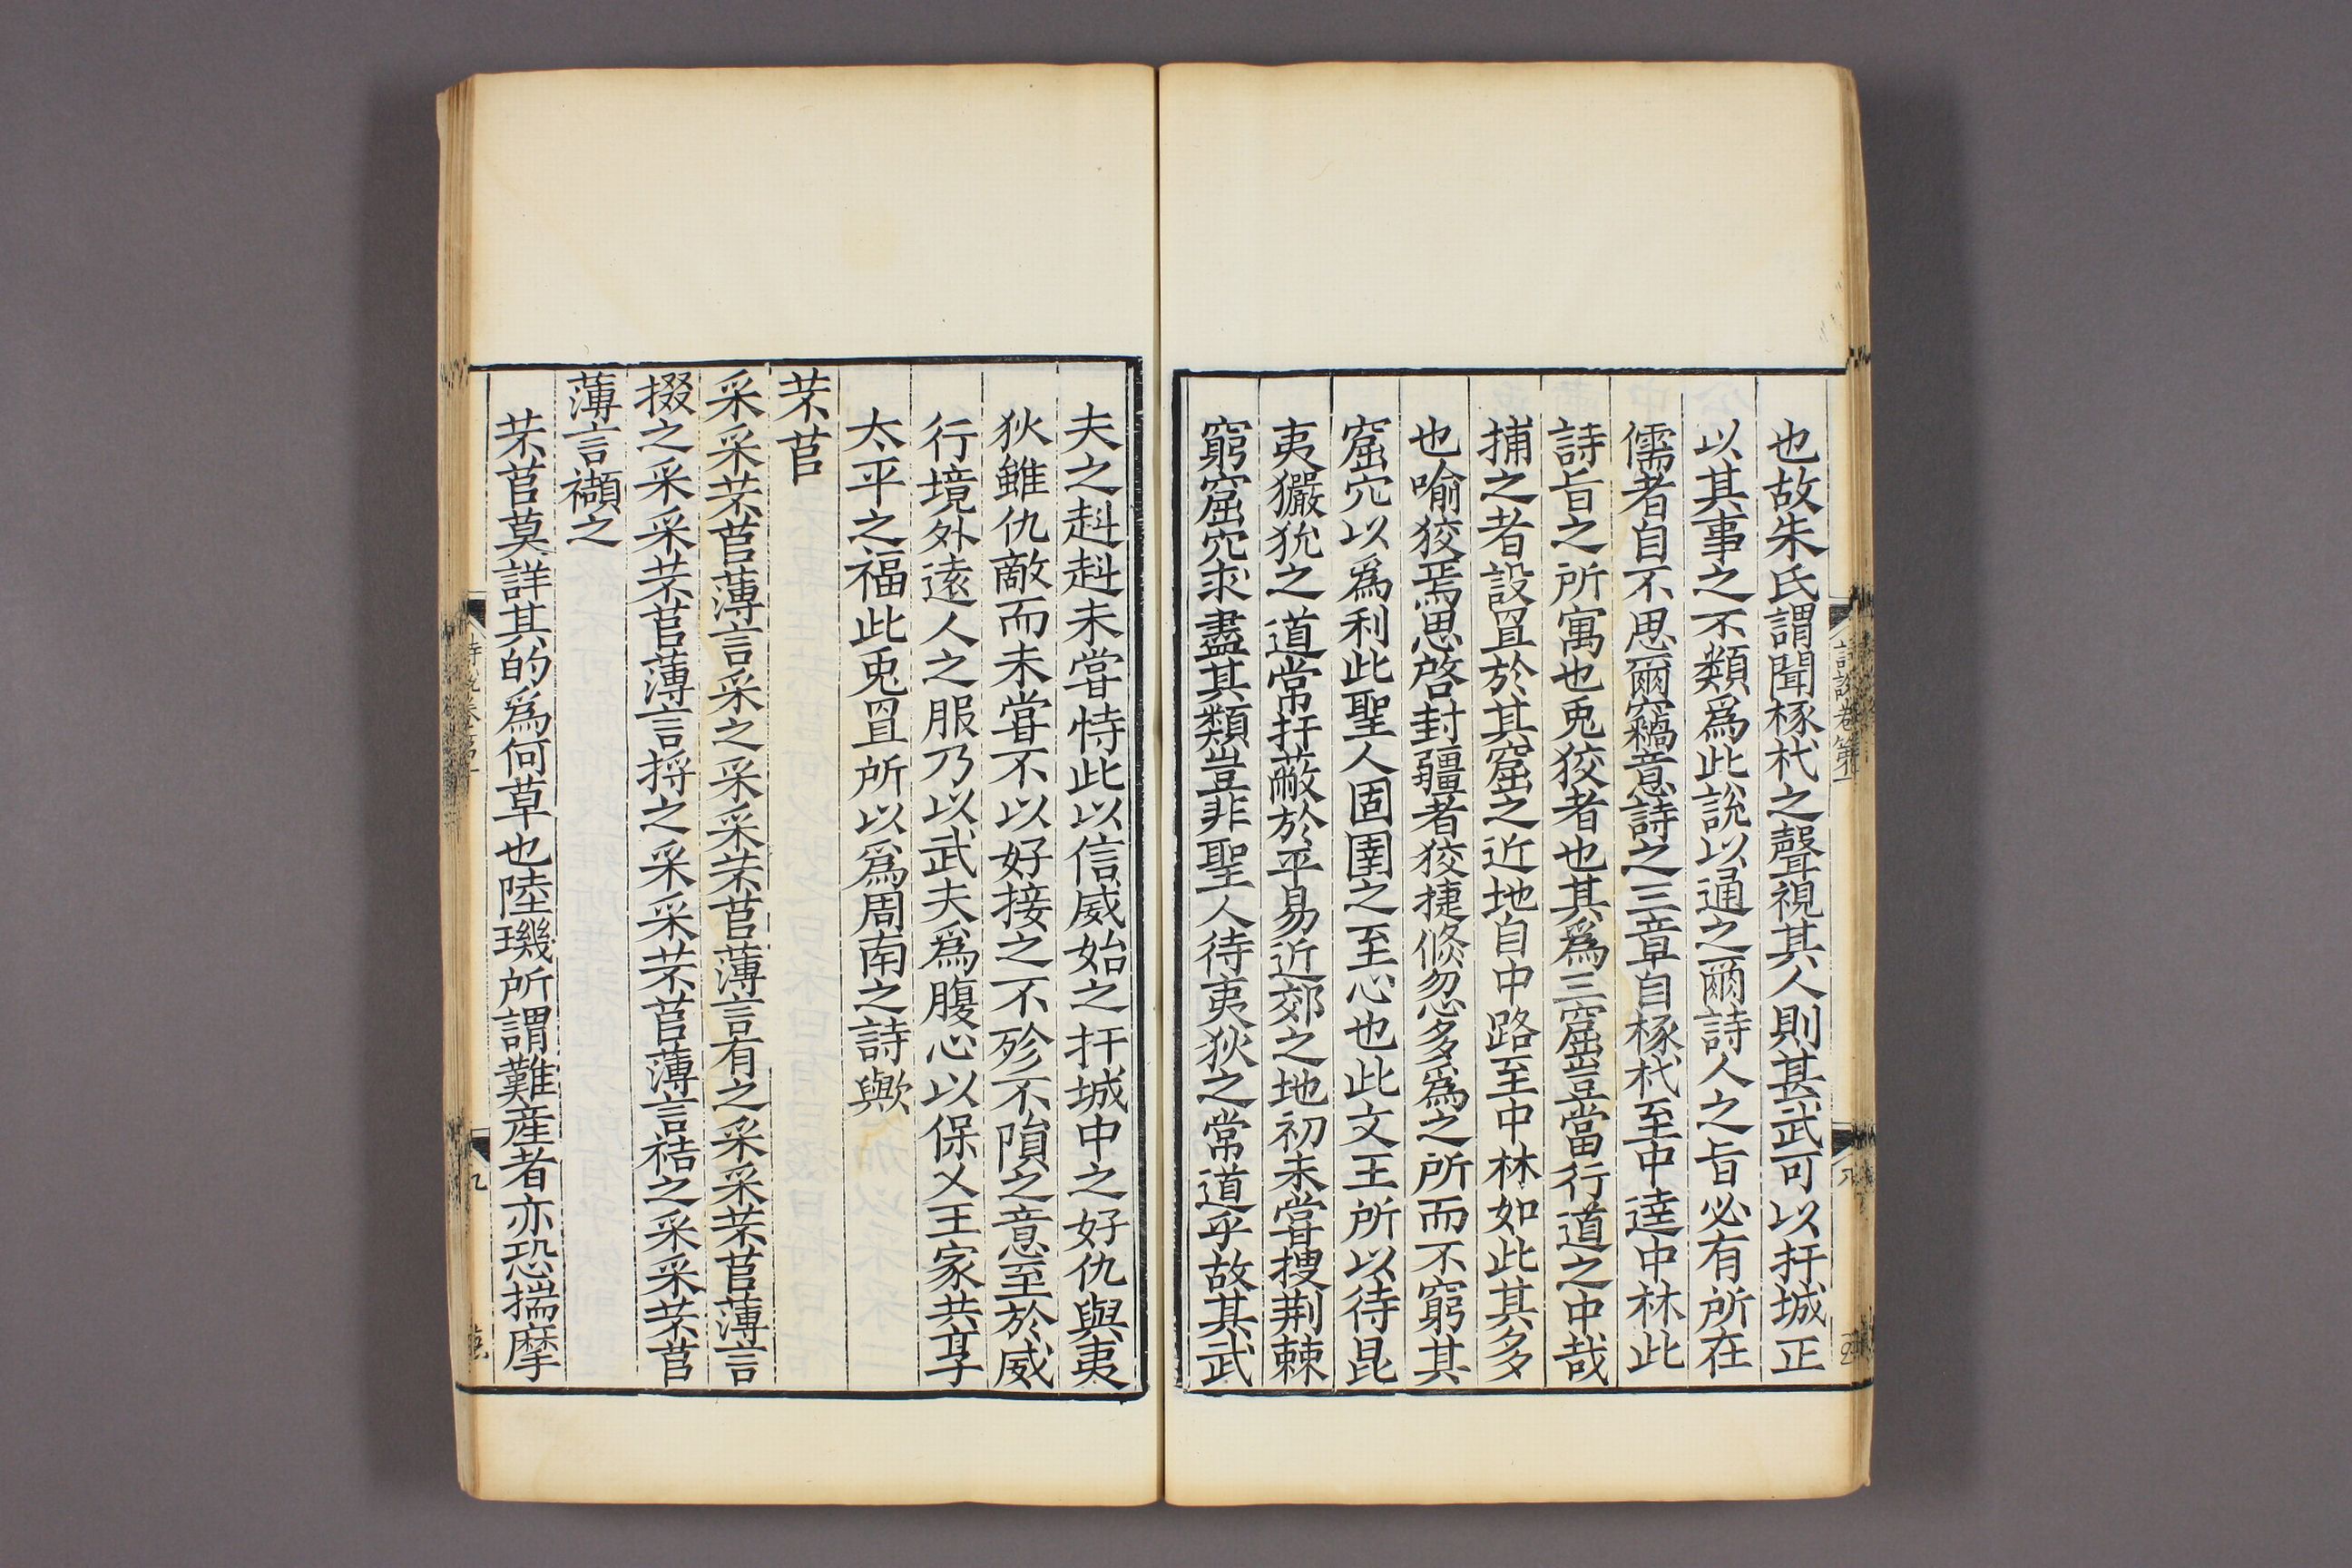 也故朱氏謂聞椓杙之聲視其人則甚武可以扞城正
以其事之不類爲此說以通之爾詩人之旨必有所在
儒者自不思爾竊意詩之三章自椓杙至中逵中林此
詩旨之所寓也兎狡者也其爲三窟豈當行道之中哉
捕之者設罝於其窟之近地自中路至中林如此其多
也喻狡焉思啓封疆者狡捷倐忽多爲之所而不窮其
窟穴以爲利此聖人固圉之至心也此文王所以待昆
夷玁狁之道常扞蔽於平易近郊之地初未甞捜荆棘
窮窟穴求盡其類豈非聖人待夷狄之常道乎故其武
詩說卷第一
夫之赳赳未甞恃此以信威始之扞城中之好仇與夷
狄雖仇敵而未甞不以好接之不殄不隕之意至於威
行境外逺人之服乃以武夫爲腹心以保乂王家共享
太平之福此兎罝所以爲周南之詩歟
芣苢
采采芣苢薄言采之采采芣苢薄言有之采采芣苢薄言
掇之采采芣苢薄言捋之采采芣苢薄言袺之采采芣苢
薄言襭之
芣苢莫詳其的爲何草也陸璣所謂難産者亦恐揣摩